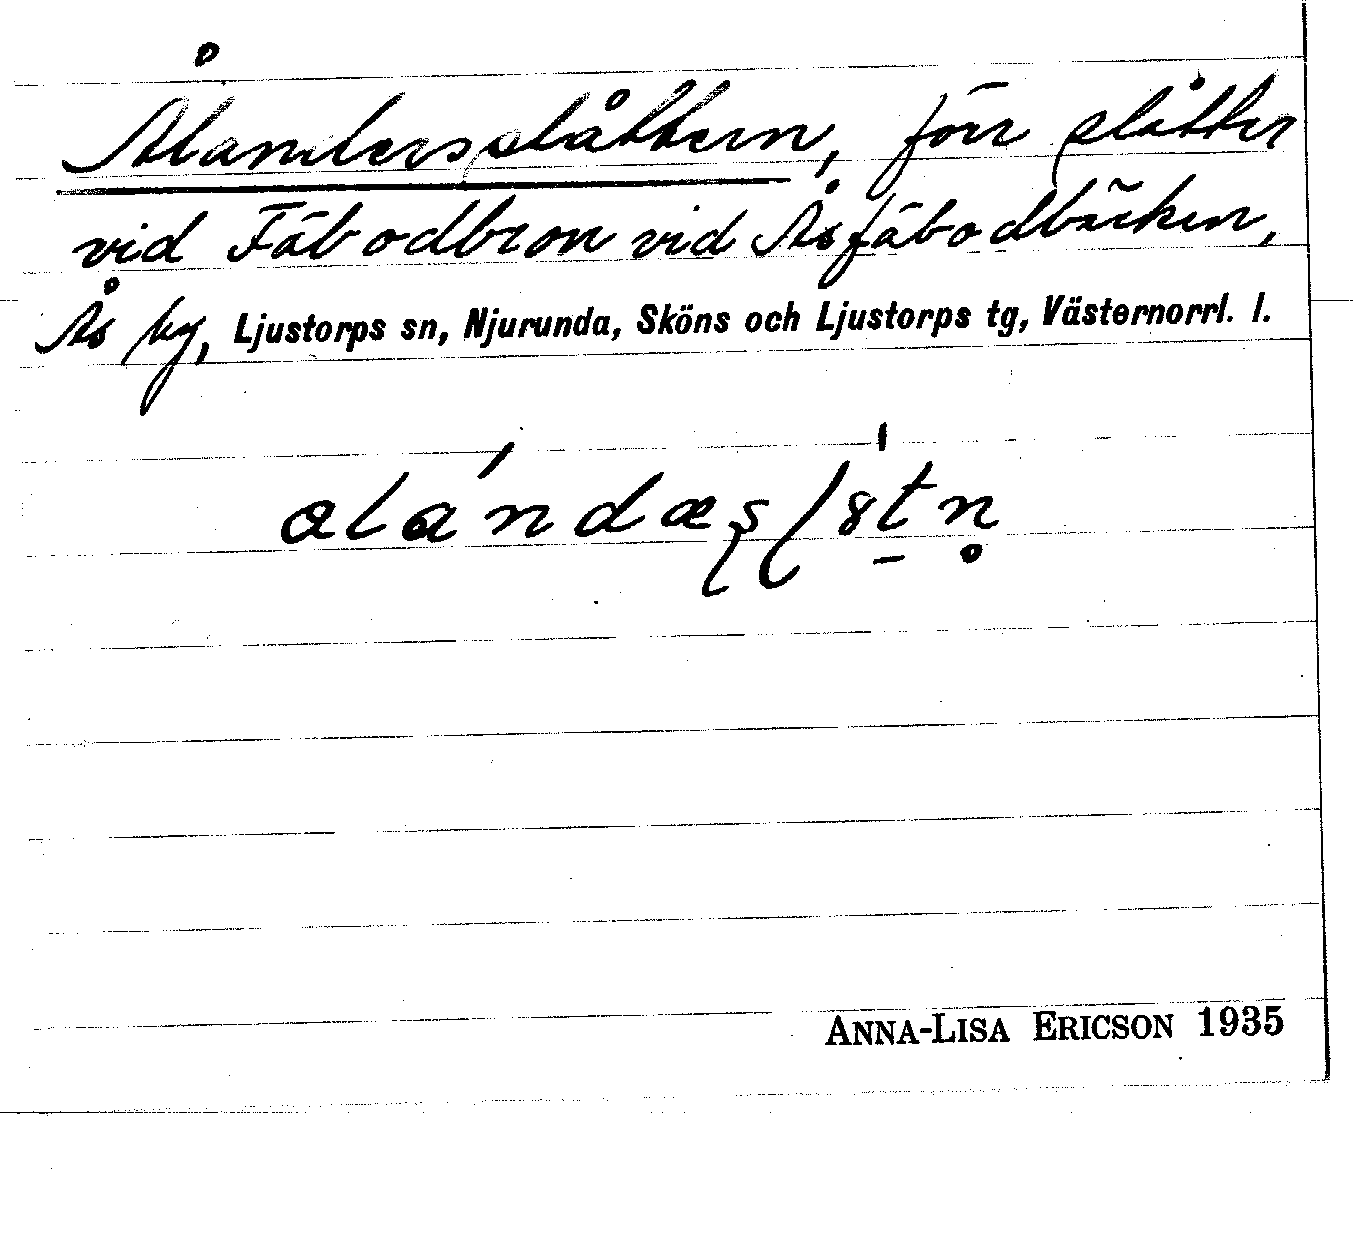 Ålandersslåttern, förr slåtter
vid Fäbodbron vid Åsfäbodbäcken,
Ås by, Ljustorps sn, Njurunda, Sköns och Ljustorps tg, Västernorrl. l.
ANNA-LISA ERICSON 1935